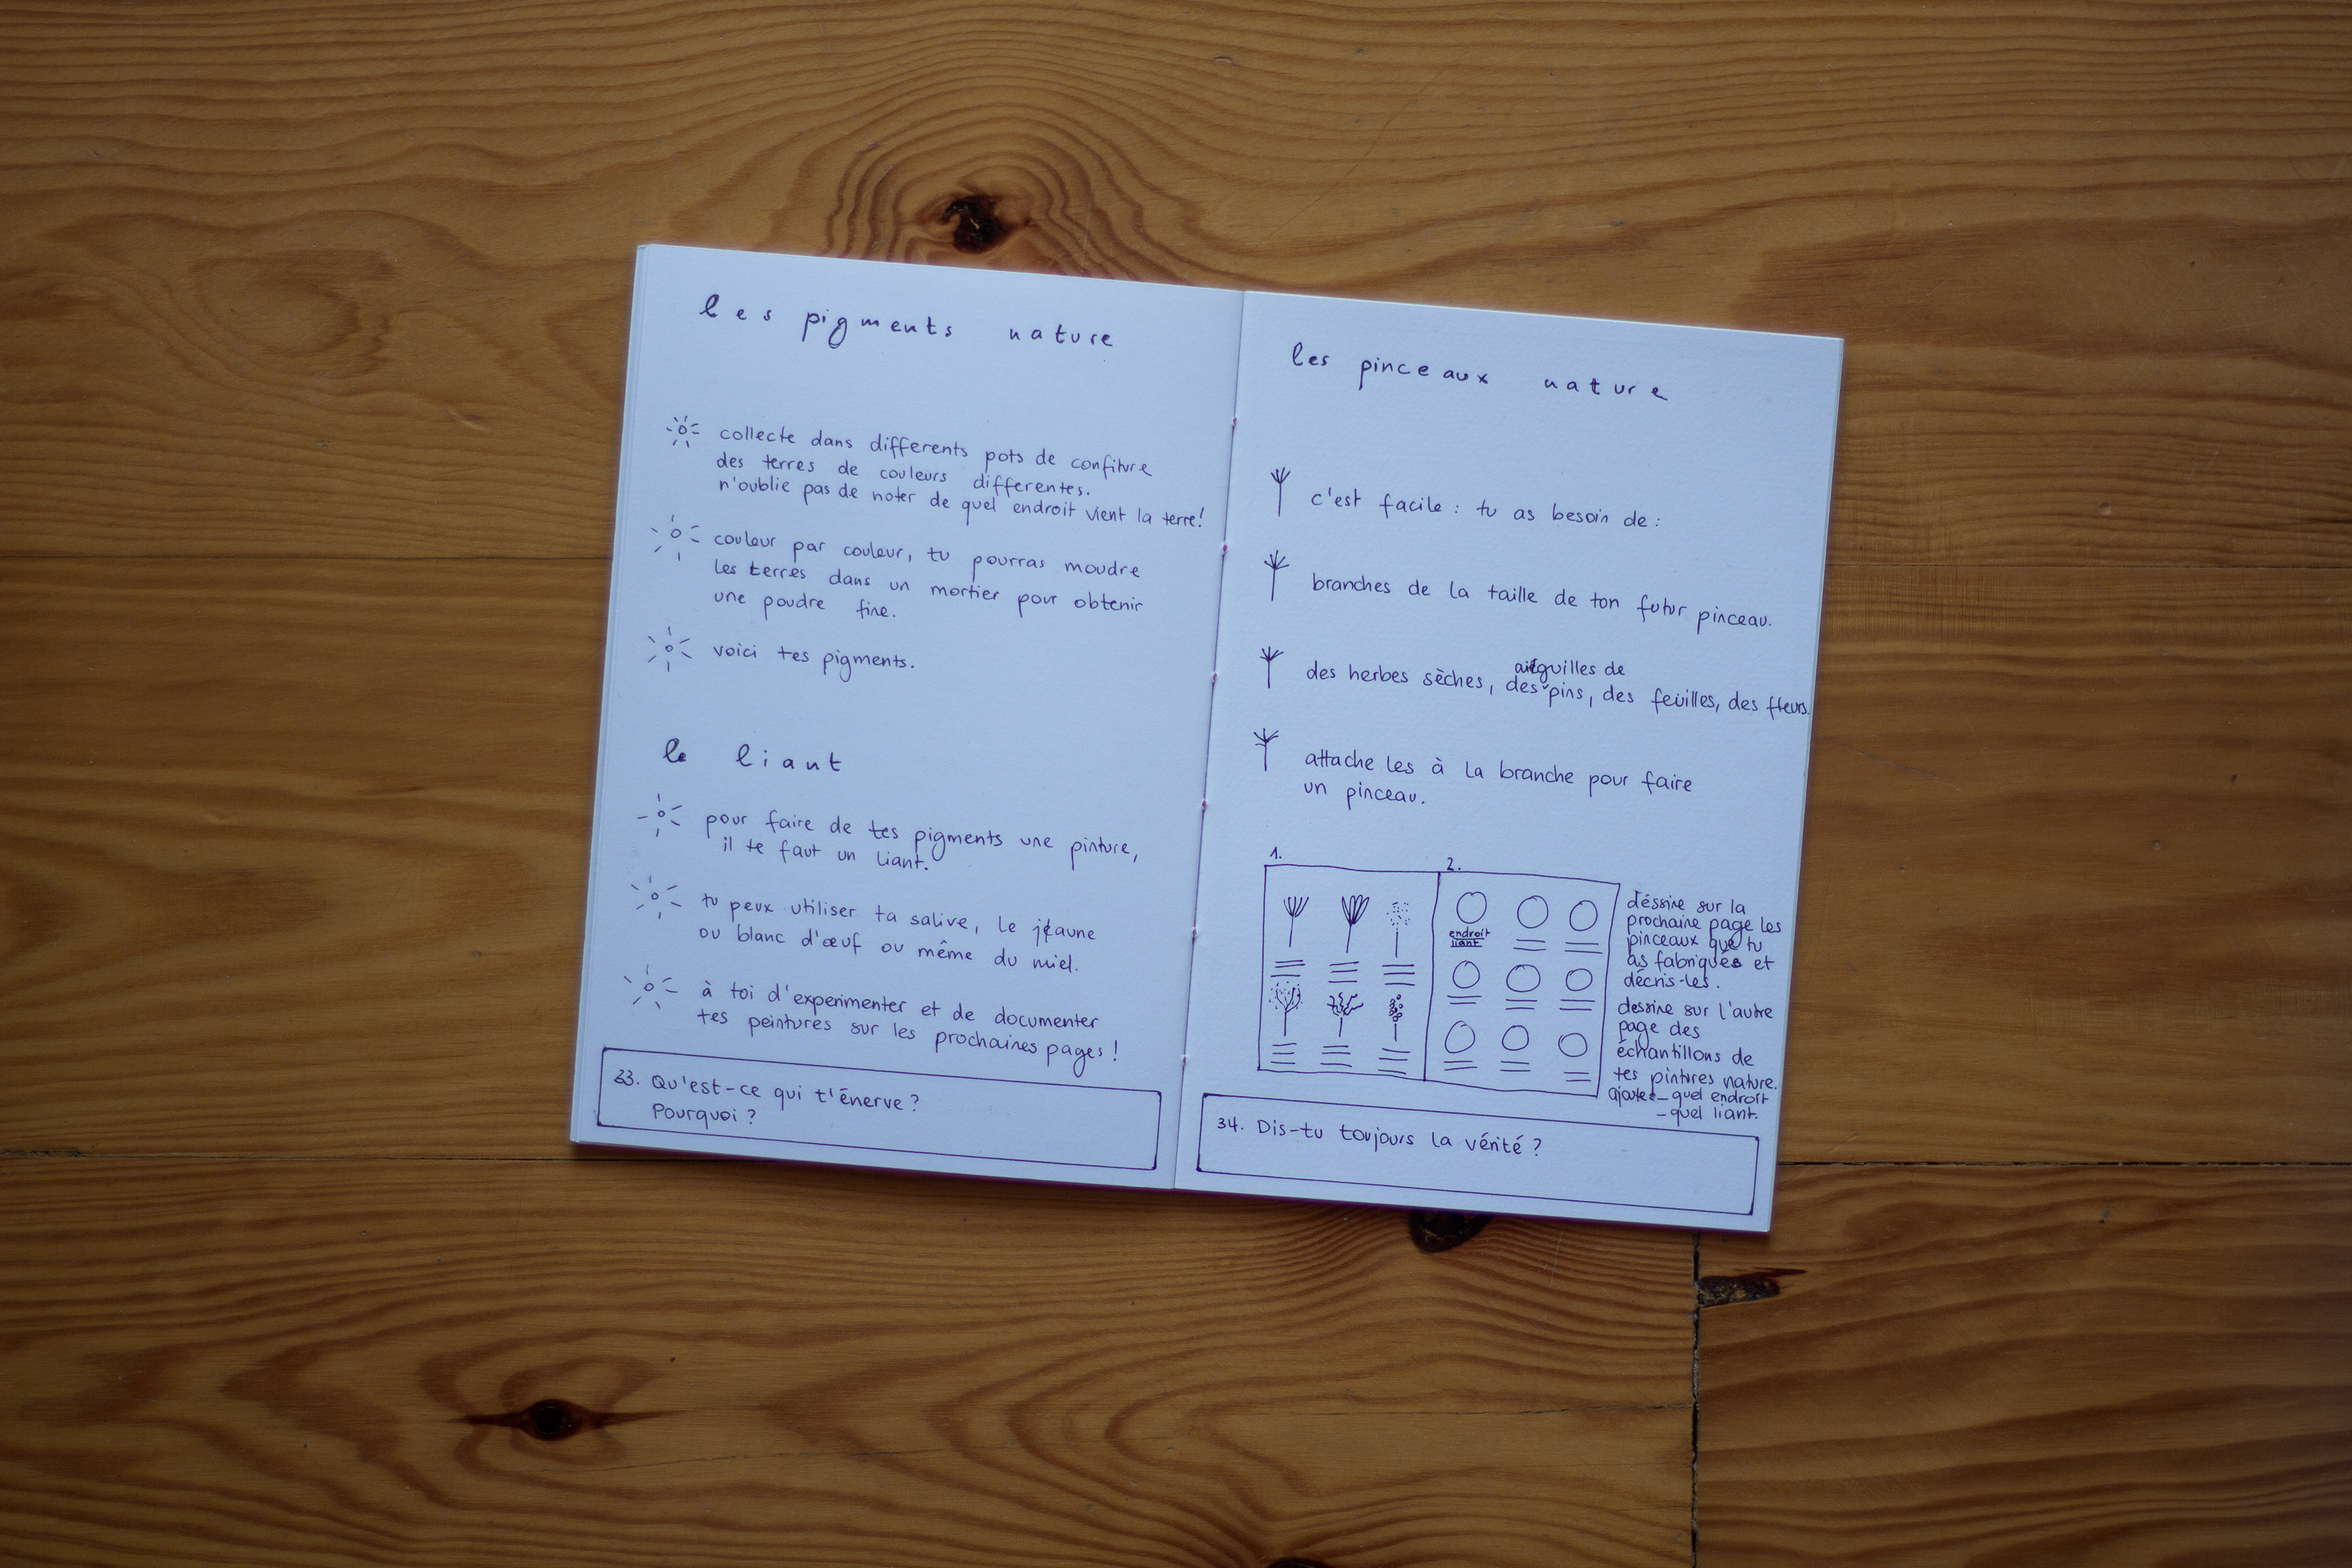 les pigments nature
collecte dans differents pots de confiture
des terres de couleurs differentes.
n'oublie pas de noter de quel endroit vient la terre!
couleur par couleur, tu pourras moudre
les terres dans un mortier pour obtenir
une poudre fine.
voici tes pigments.
le liant
pour faire de tes pigments une pinture,
il te faut un liant.
tu peux utiliser ta salive, le jaune
ou blanc d'œuf ou même du miel.
à toi d'experimenter et de documenter
tes peintures sur les prochaines pages!
33. Qu'est-ce qui t'énerve?
Pourquoi?
les pinceaux nature
c'est facile: tu as besoin de:
branches de la taille de ton futur pinceau.
des herbes sèches, des aiguilles de pins, des feuilles, des fleurs.
attache les à la branche pour faire
un pinceau.
1.
2.
endroit
liant
déssine sur la
prochaine page les
pinceaux que tu
as fabriqués et
décris-les.
dessine sur l'autre
page des
échantillons de
tes pintures nature.
ajoute - quel endroit
- quel liant.
34. Dis-tu toujours la vérité?